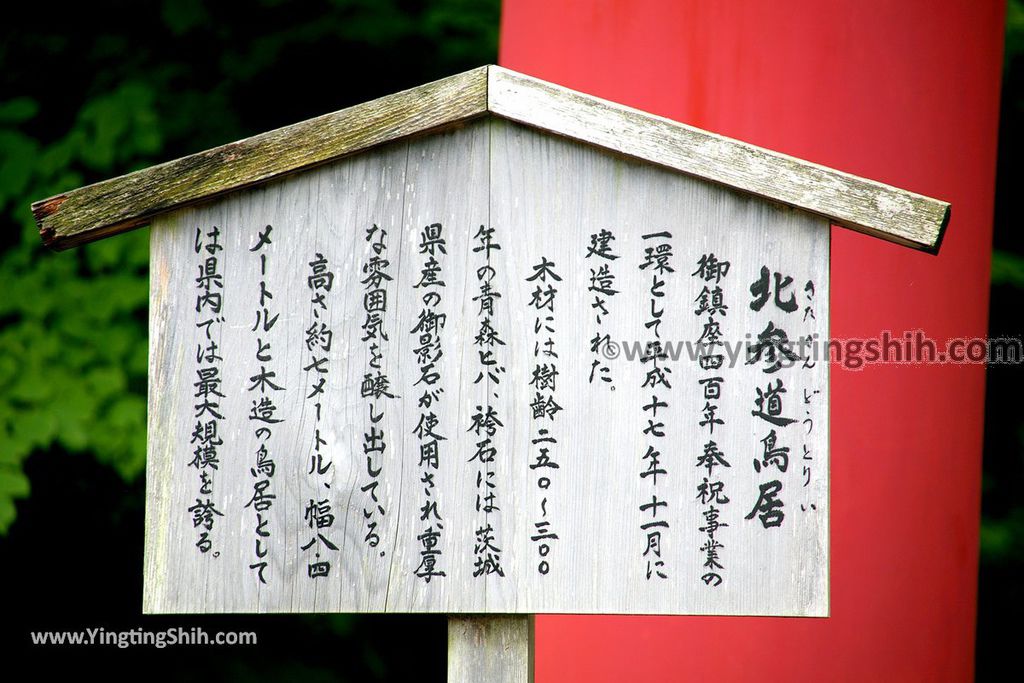 北参道鳥居
きたさんどうとりい
御鎮座四百年奉祝事業の
一環として平成十七年十一月に
建造された。
木材には樹齢二五〇〜三〇〇
年の青森ヒバ、袴石には茨城
県産の御影石が使用され、重厚
な雰囲気を醸し出している。
高さ約七メートル、幅八・四
メートルと木造の鳥居として
は県内では最大規模を誇る。
©www.yingtingshih.com
www.YingtingShih.com